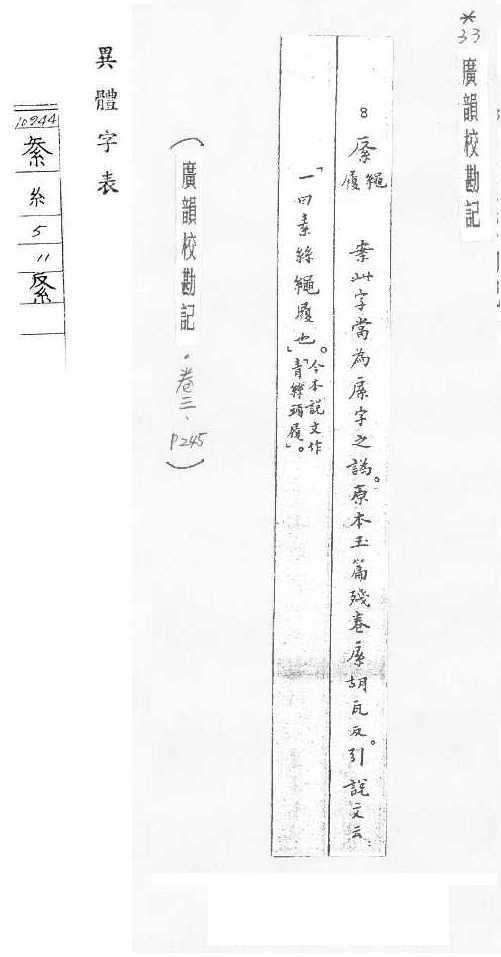 *33
廣韻校勘記
8 繩履 案此字當為字之譌。原本玉篇殘卷胡瓦反。引說文云:
「一曰素絲繩履也。」今本說文作「青絲頭履」。
(廣韻校勘記·卷三、P245)
異體字表
10944 糸 5 〃